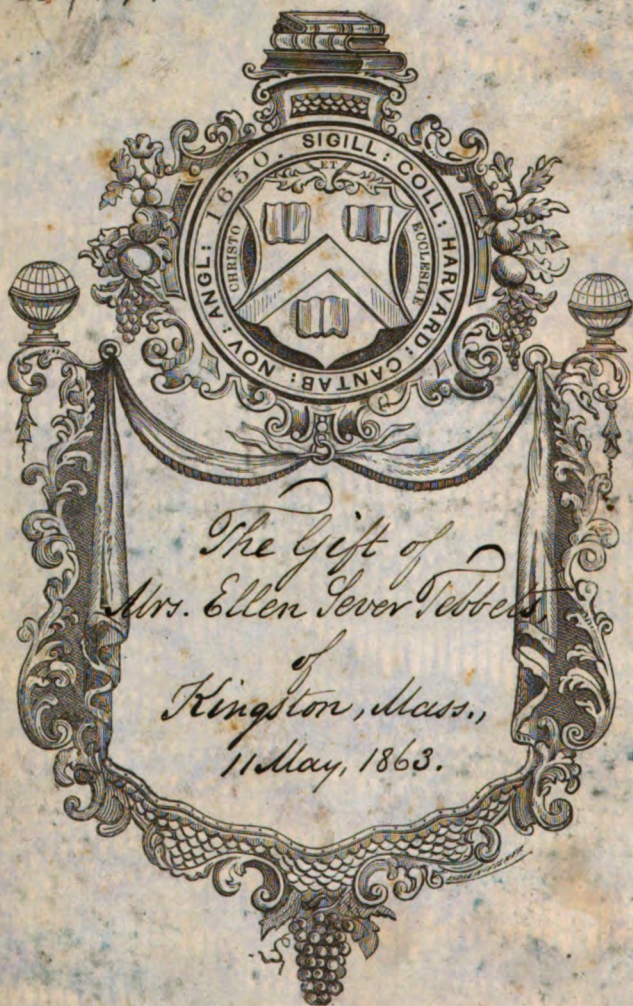 SIGILL: COLL: HARVARD: CANTAB: NOV: ANGL: 1650.
CHRISTO ET ECCLESIAE
The Gift of
Mrs. Ellen Sever Tebbets,
of
Kingston, Mass.,
11 May, 1863.